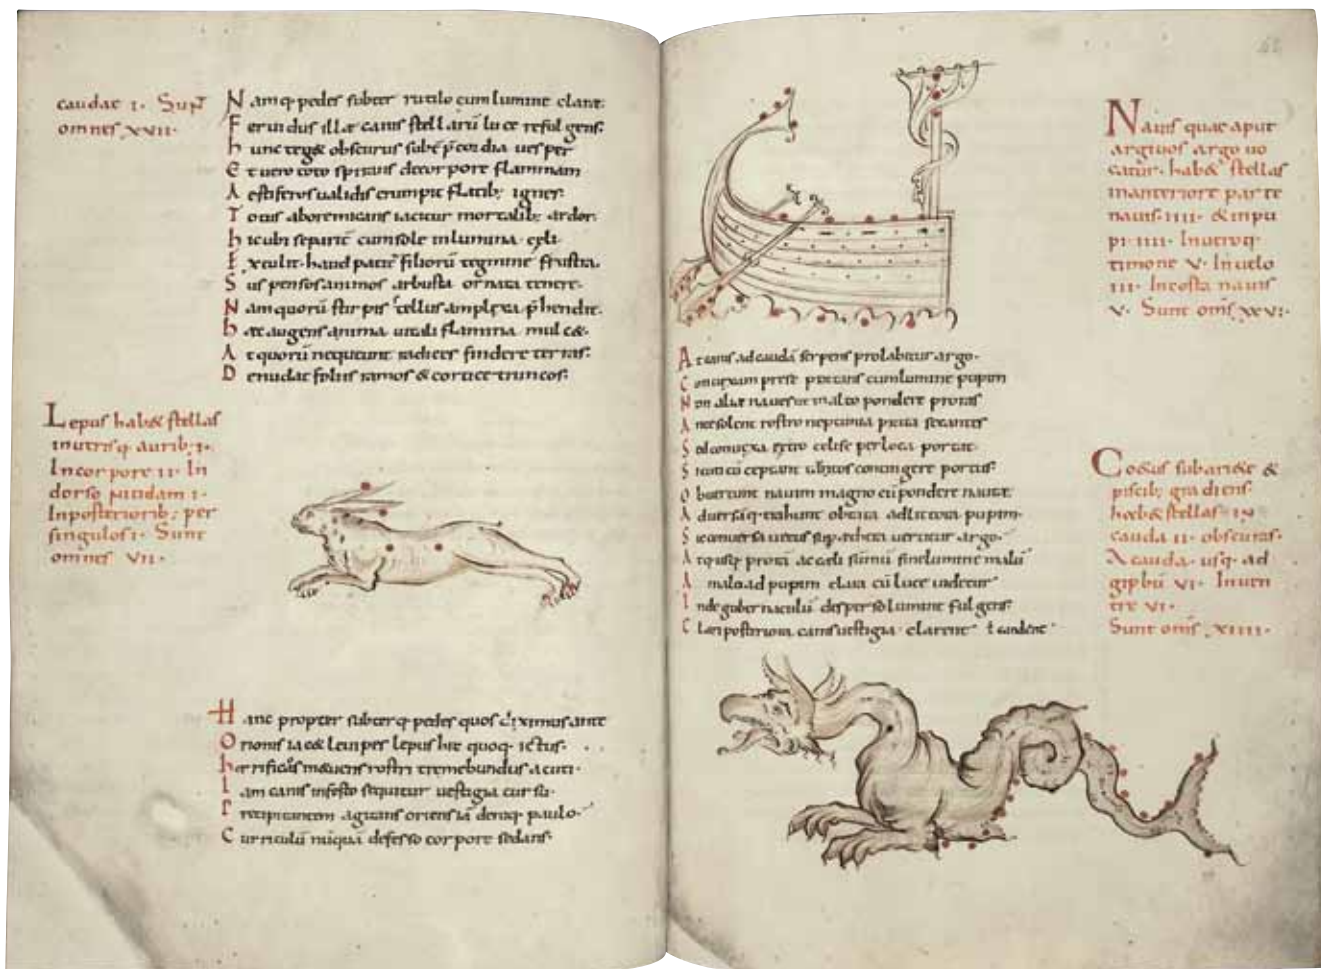 caudae I. Supͬ
omnes XVII.
Namq; pedes subter rutilo cum lumine claret.
Feruidus illæ canis stellarū luce refulgens.
hunc teg& obscurus subē p̄cordia uesper
Et uero toto spirans de corpore flammam
Aestiferos ualidis erumpit flatib; ignes.
Totus ab ore micans iacitur mortalib; ardor.
hic ubi se parit̄ cum sole in lumina celi
Extulit. haud patit̄ foliorū tegmine frustra.
Suspensos animos arbusta ornata tenere.
Nam quorū stirpis tellus amplexa p̄hendit.
hæc augens anima uitali flamina mulc&.
At quorū nequeunt radices findere terras.
Denudat foliis ramos & cortice truncos.
Lepus hab& stellas
in utrisq. aurib; I.
In corpore II. In
dorso I.
In posteriorib; per
singulos I. Sunt
omnes VII.
Hanc propter subterq; pedes quos diximus ante
Orionis iac& leuiper lepus hic quoq. ictus.
horrificos m&uens rostri tremebundus acuti.
Iam canis infesto sequitur uestigia cursu.
Precipitantem agitans oriens iā deniq. paulo.
Curriculū defesso corpore sedans.
Nauis quae aput
argiuos argo uo
catur. hab& stellas
in anteriore parte
nauis IIII. & in pu
pi IIII. In utroq.
timone V. In uelo
III. In costa nauis
V. Sunt om̄s XXVI.
At canis ad caudā serpens prolabitur argo.
Conuexam prese portans cum lumine pupim
Non aliæ naues ut in alto pondere proras
Ante solent rostro neptunia prata secantes
Sed conuexa retro celi se per loca portat.
Sicut cū ceptant tutos contingere portus.
Obuertunt nauim magno cū pondere nautæ.
Aduersāq; trahunt obtata ad litora pupim.
Sic conuersa uetus sup. æthera uertitur argo.
Atq; usq; prora ac celi sūmū sine lumine malū
A malo ad pupim cū luce uidetur
Inde gubernaculū disperso lumine fulgens
Clari posteriora canis uestigia. clarent. ł candent.
Coetus sub ariete &
piscib; gradiens.
hab& stellas in
cauda II. obscuras.
A cauda. usq. ad
gipbū VI. In uen
tre VI.
Sunt om̄s XIIII.